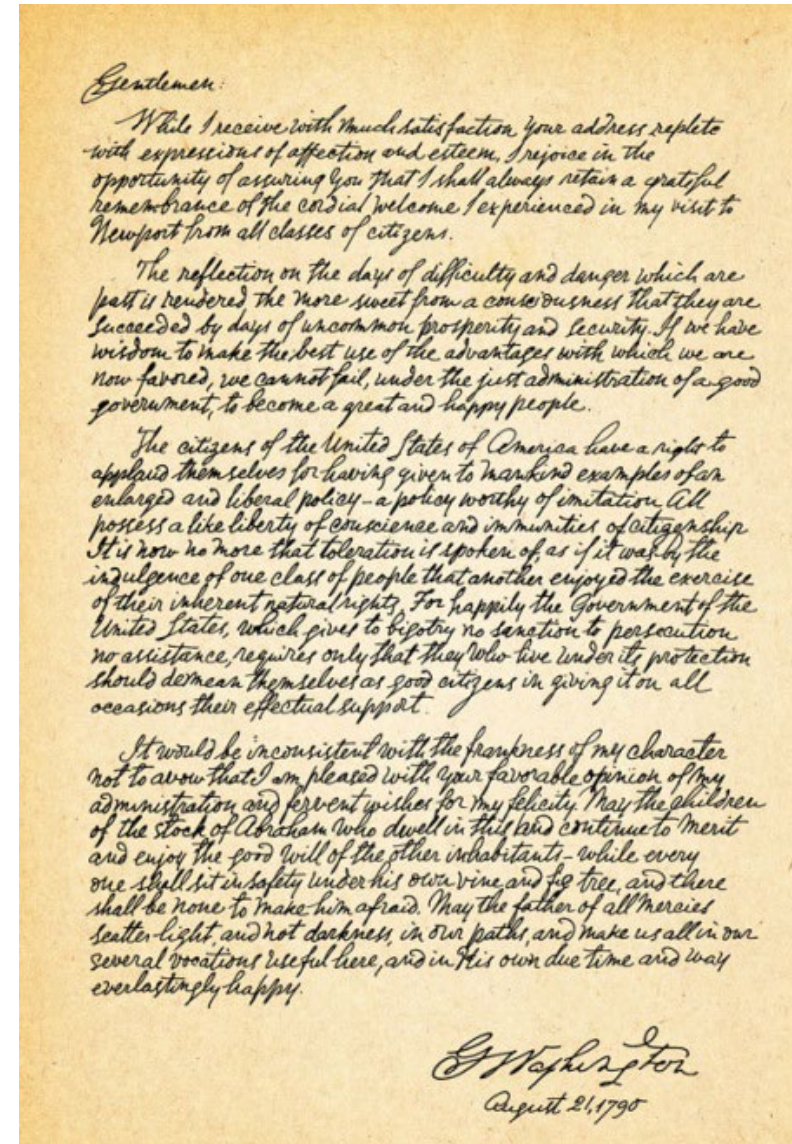 Gentlemen:
While I receive with much satisfaction your address replete
with expressions of affection and esteem, I rejoice in the
opportunity of assuring you that I shall always retain a grateful
remembrance of the cordial welcome I experienced in my visit to
Newport from all classes of citizens.
The reflection on the days of difficulty and danger which are
past is rendered the more sweet from a consciousness that they are
succeeded by days of uncommon prosperity and security. If we have
wisdom to make the best use of the advantages with which we are
now favored, we cannot fail, under the just administration of a good
government, to become a great and happy people.
The citizens of the United States of America have a right to
applaud themselves for having given to mankind examples of an
enlarged and liberal policy - a policy worthy of imitation. All
possess a like liberty of conscience and immunities of citizenship.
It is now no more that toleration is spoken of, as if it was by the
indulgence of one class of people that another enjoyed the exercise
of their inherent natural rights. For happily the Government of the
United States, which gives to bigotry no sanction to persecution
no assistance, requires only that they who live under its protection
should demean themselves as good citizens in giving it on all
occasions their effectual support.
It would be inconsistent with the frankness of my character
not to avow that I am pleased with your favorable opinion of my
administration and fervent wishes for my felicity. May the children
of the stock of Abraham who dwell in this land continue to merit
and enjoy the good will of the other inhabitants - while every
one shall sit in safety under his own vine and fig tree, and there
shall be none to make him afraid. May the father of all mercies
scatter light, and not darkness, in our paths, and make us all in our
several vocations useful here, and in His own due time and way
everlastingly happy.
G Washington
August 21, 1790